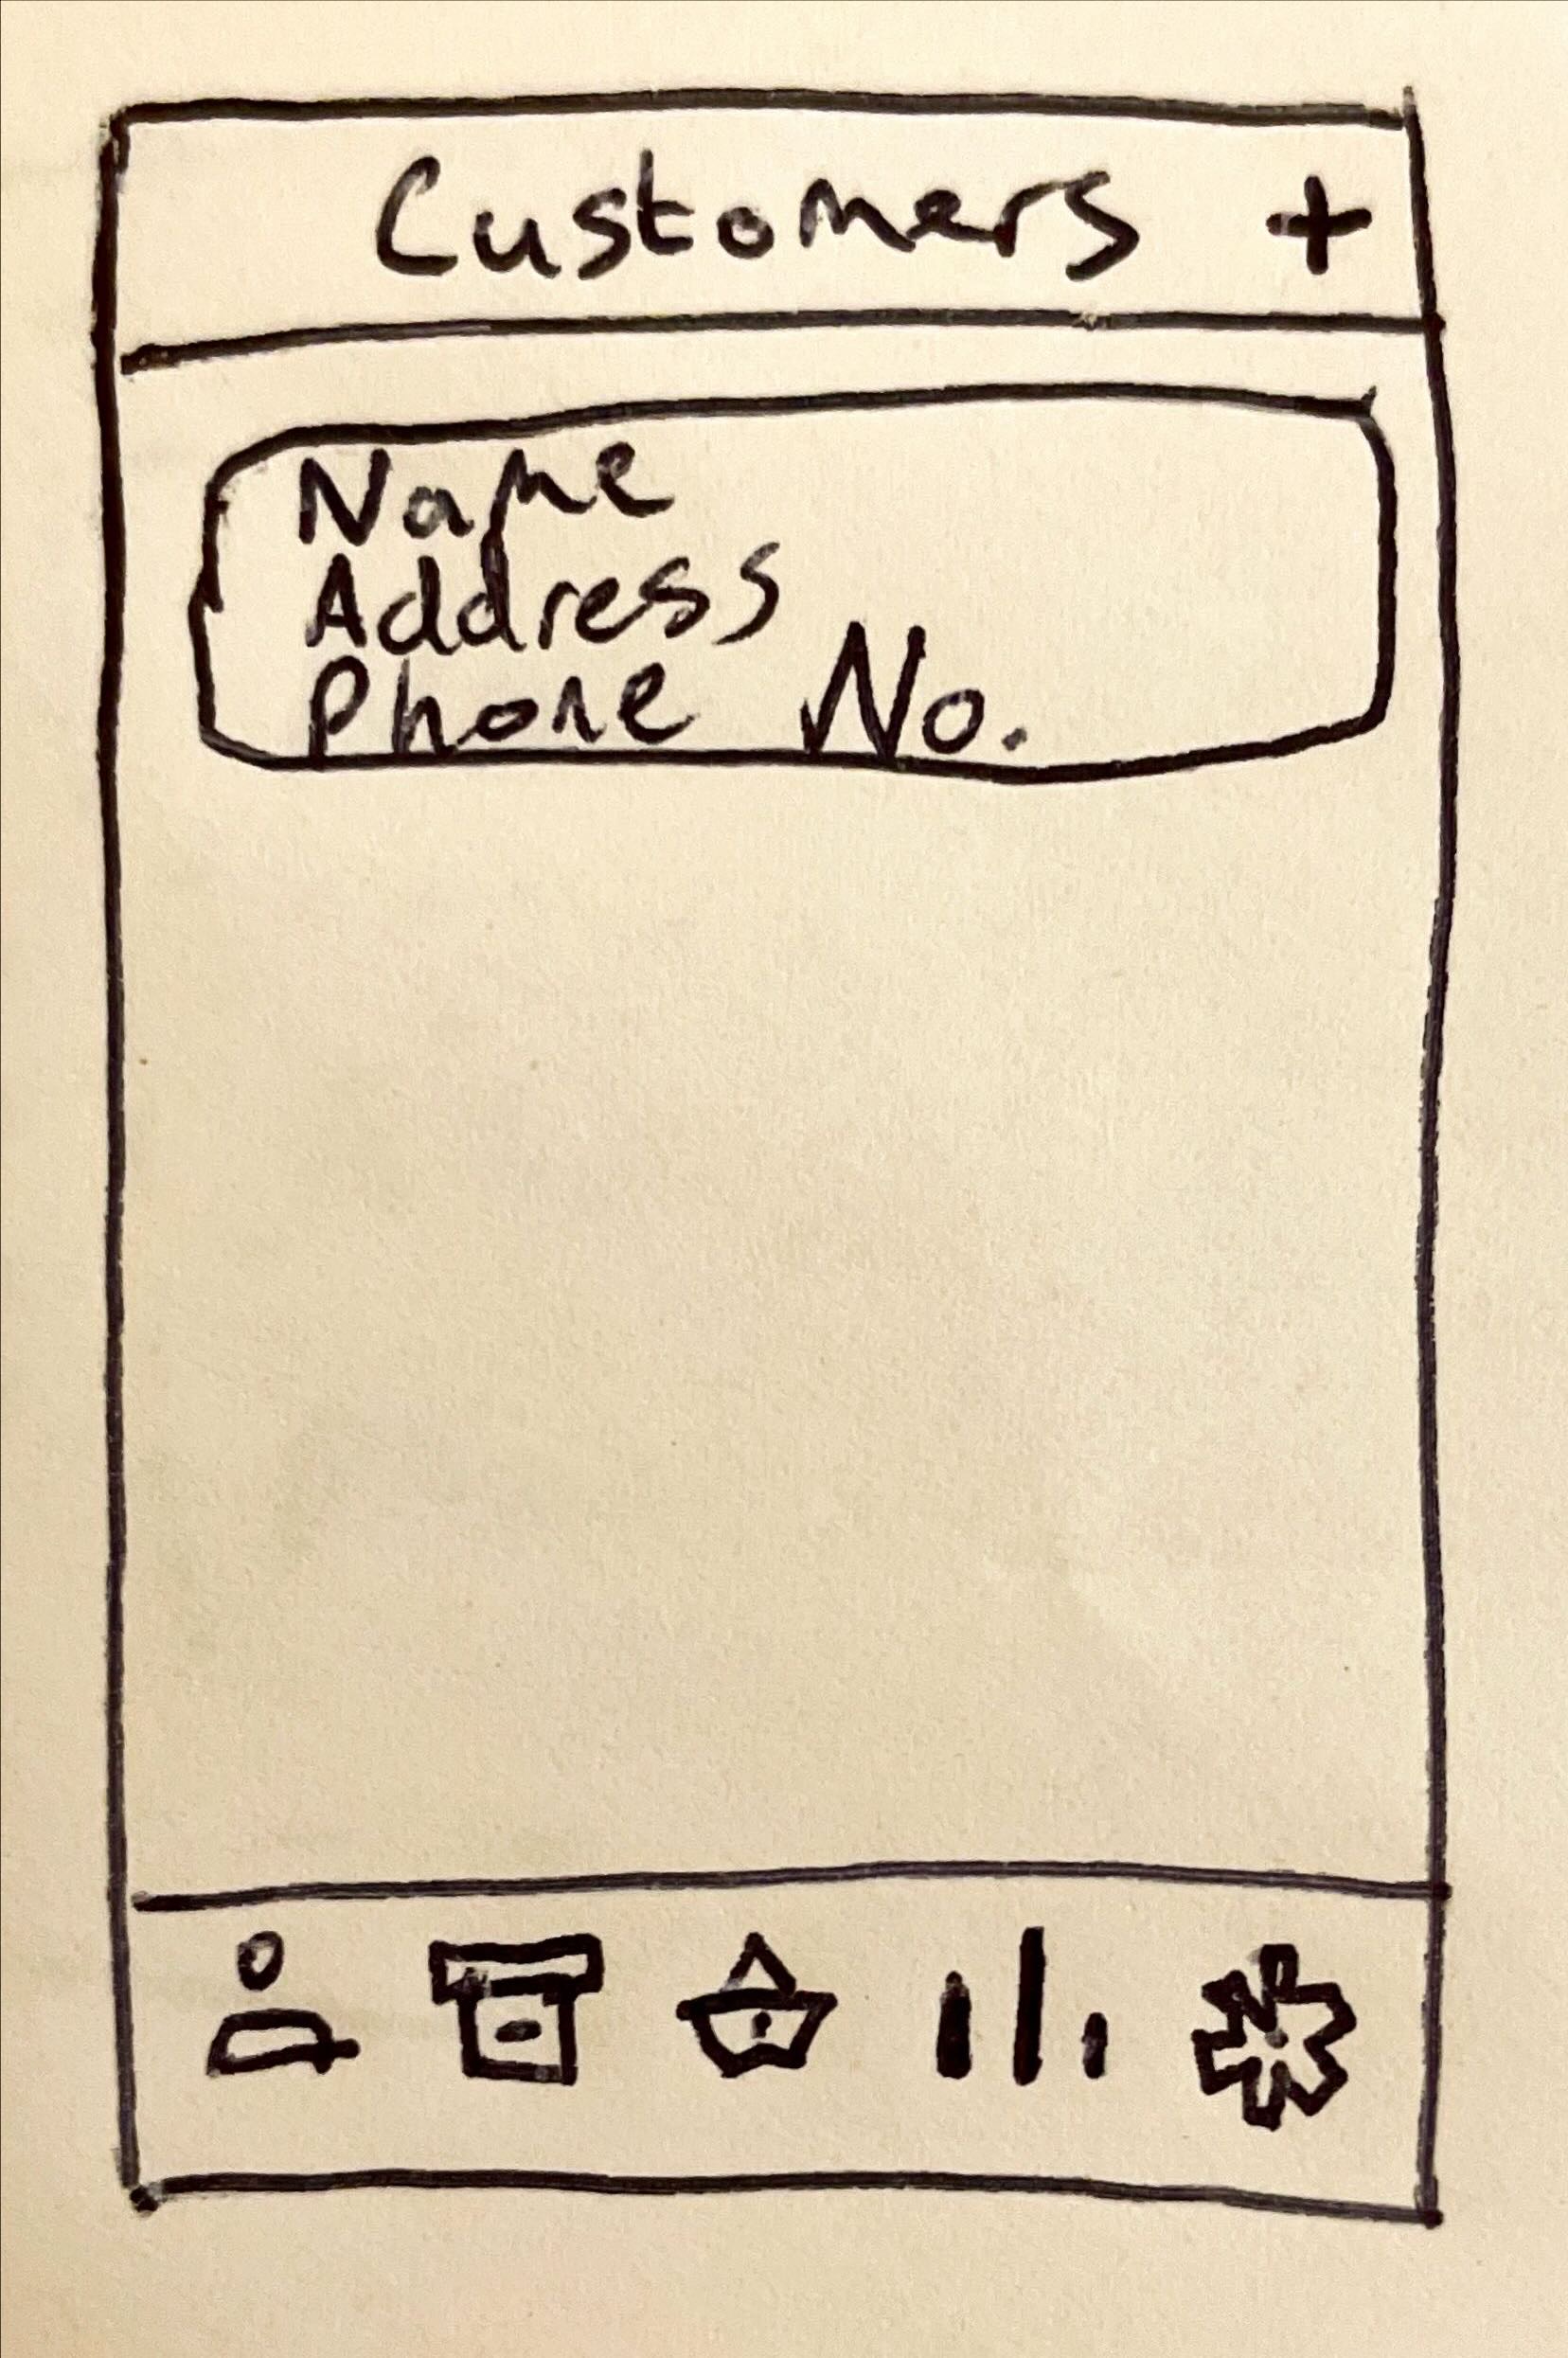 Customers +
Name
Address
Phone No.